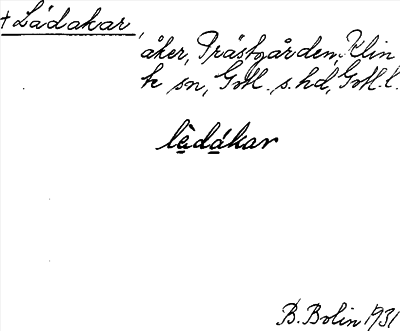 † Ládakar,
åker, Prästgården, Klin
te sn, Gotl. s. hd, Gotl. l.
lèdákar
B. Bolin 1931